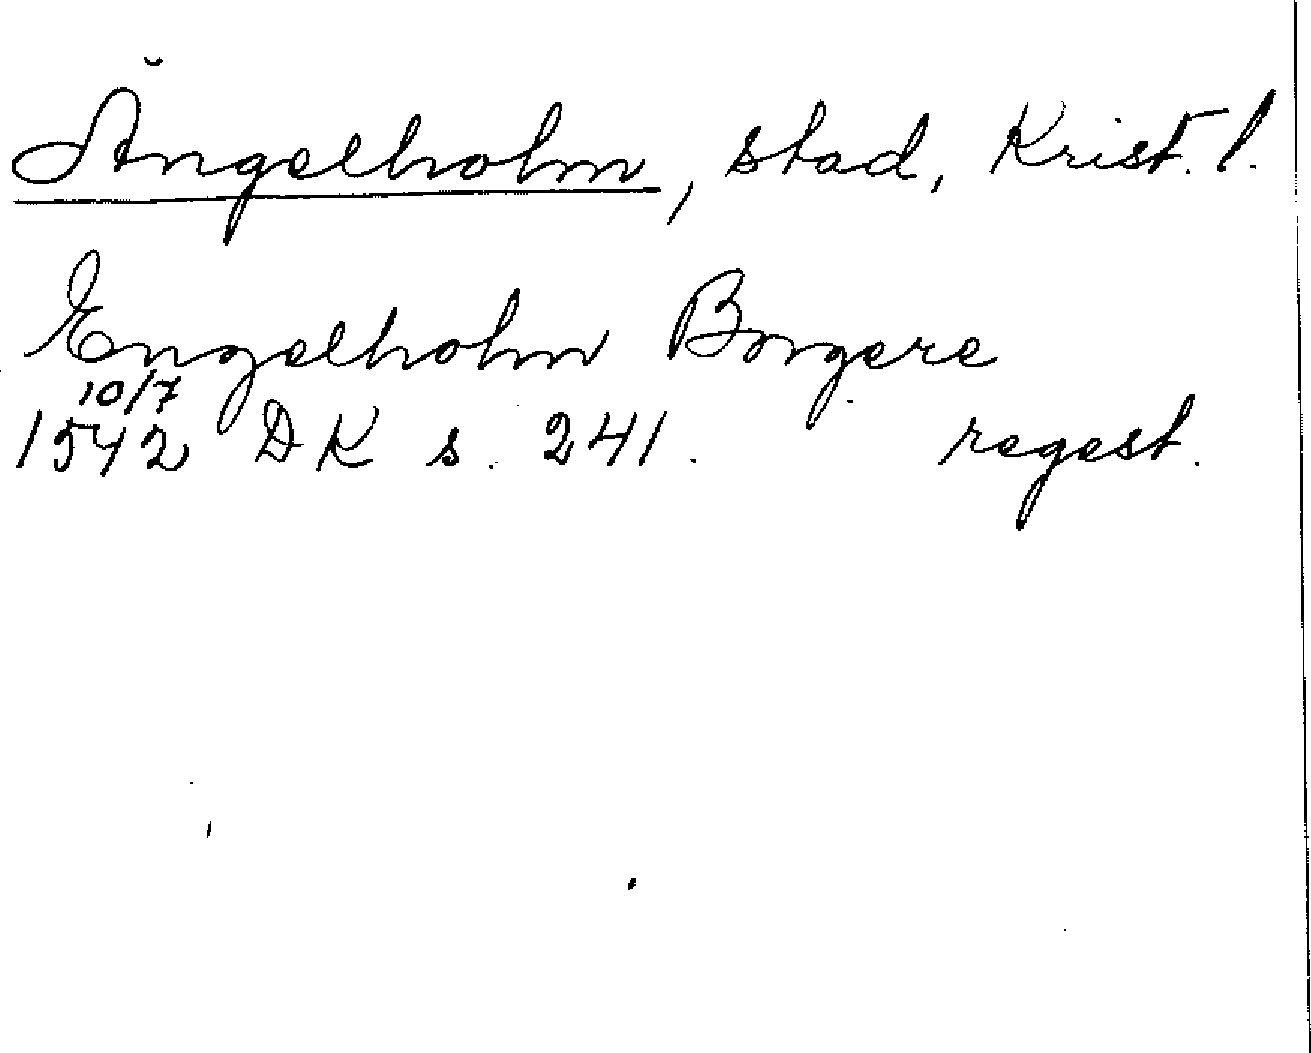 Ängelholm, stad, Krist. l.
Engelholm Borgere
10/7
1542 DK s. 241. regest.